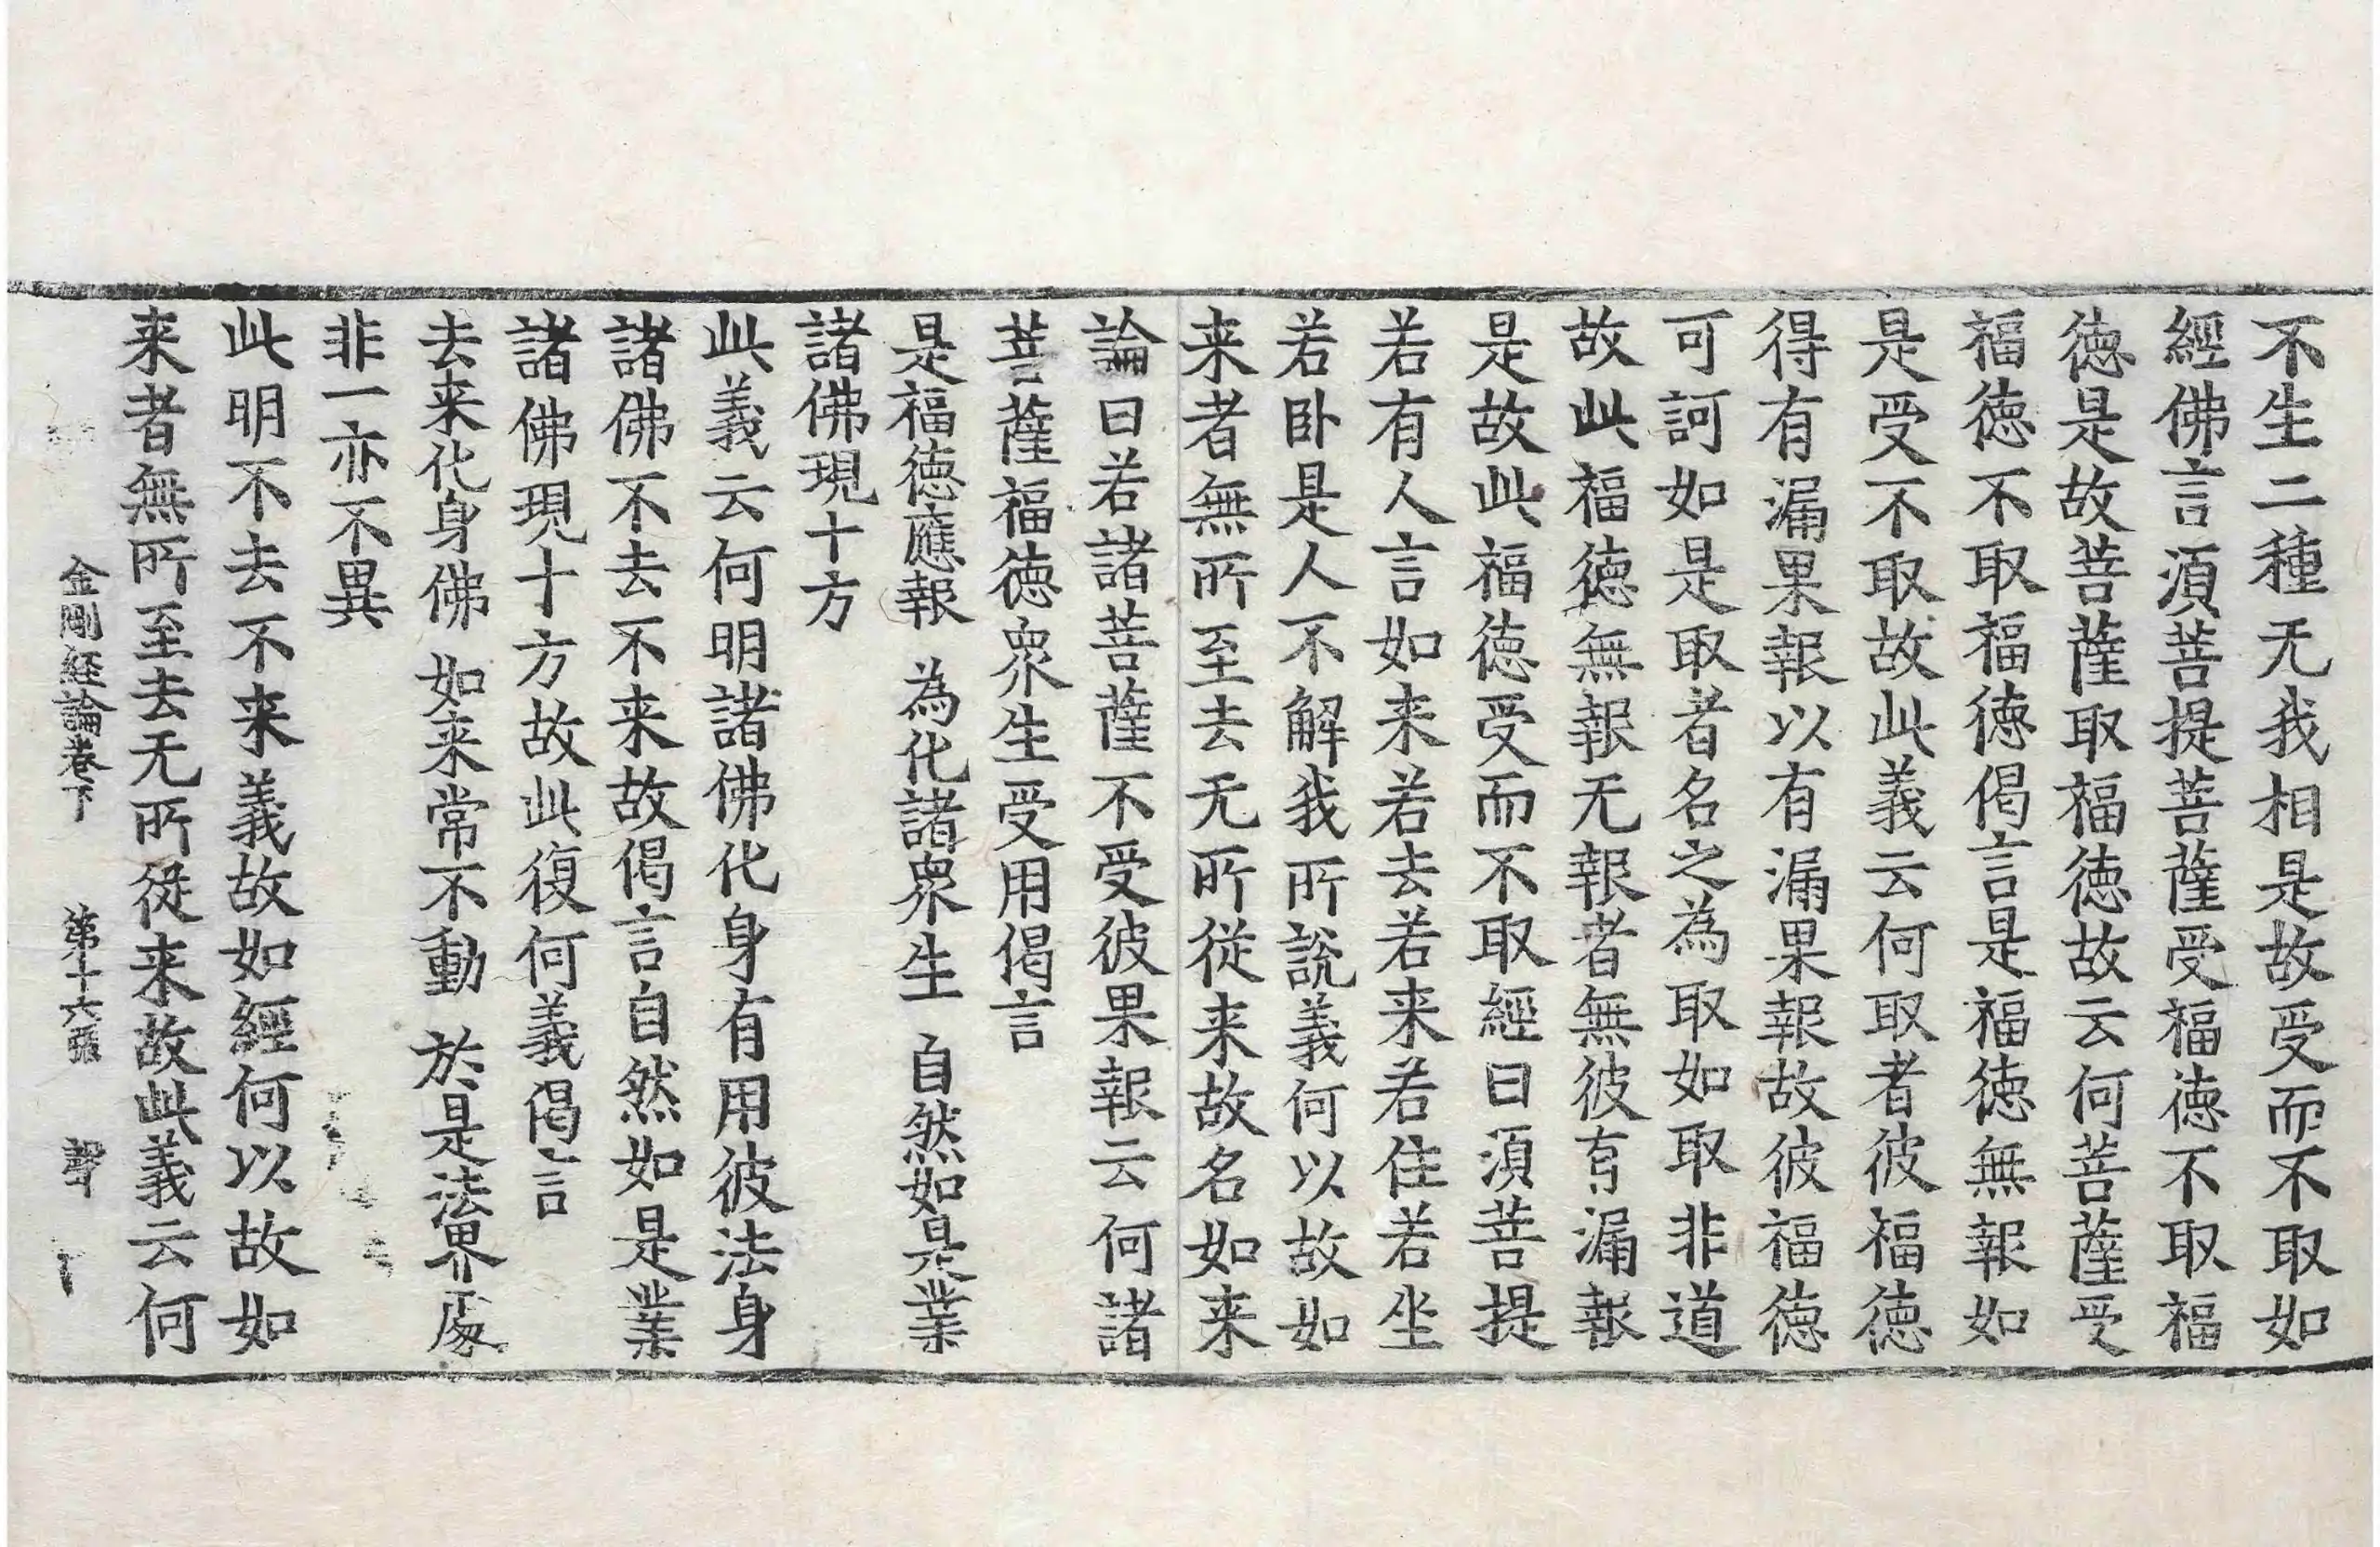 不生二種无我相是故受而不取如
經佛言湏菩提菩薩受福徳不取福
徳是故菩薩取福徳故云何菩薩受
福徳不取福徳偈言是福徳無報如
是受不取故此義云何取者彼福徳
得有漏果報以有漏果報故彼福徳
可訶如是取者名之為取如取非道
故此福徳無報无報者無彼有漏報
是故此福徳受而不取經曰湏菩提
若有人言如来若去若来若住若坐
若卧是人不解我所說義何以故如
来者無所至去无所從来故名如来
論曰若諸菩薩不受彼果報云何諸
菩薩福徳衆生受用偈言
是福徳應報 為化諸衆生 自然如是業
諸佛現十方
此義云何明諸佛化身有用彼法身
諸佛不去不来故偈言自然如是業
諸佛現十方故此復何義偈言
去来化身佛 如来常不動 於是法界處
非一亦不異
此明不去不来義故如經何以故如
来者無所至去无所從来故此義云何
金剛經論卷下 第十六張